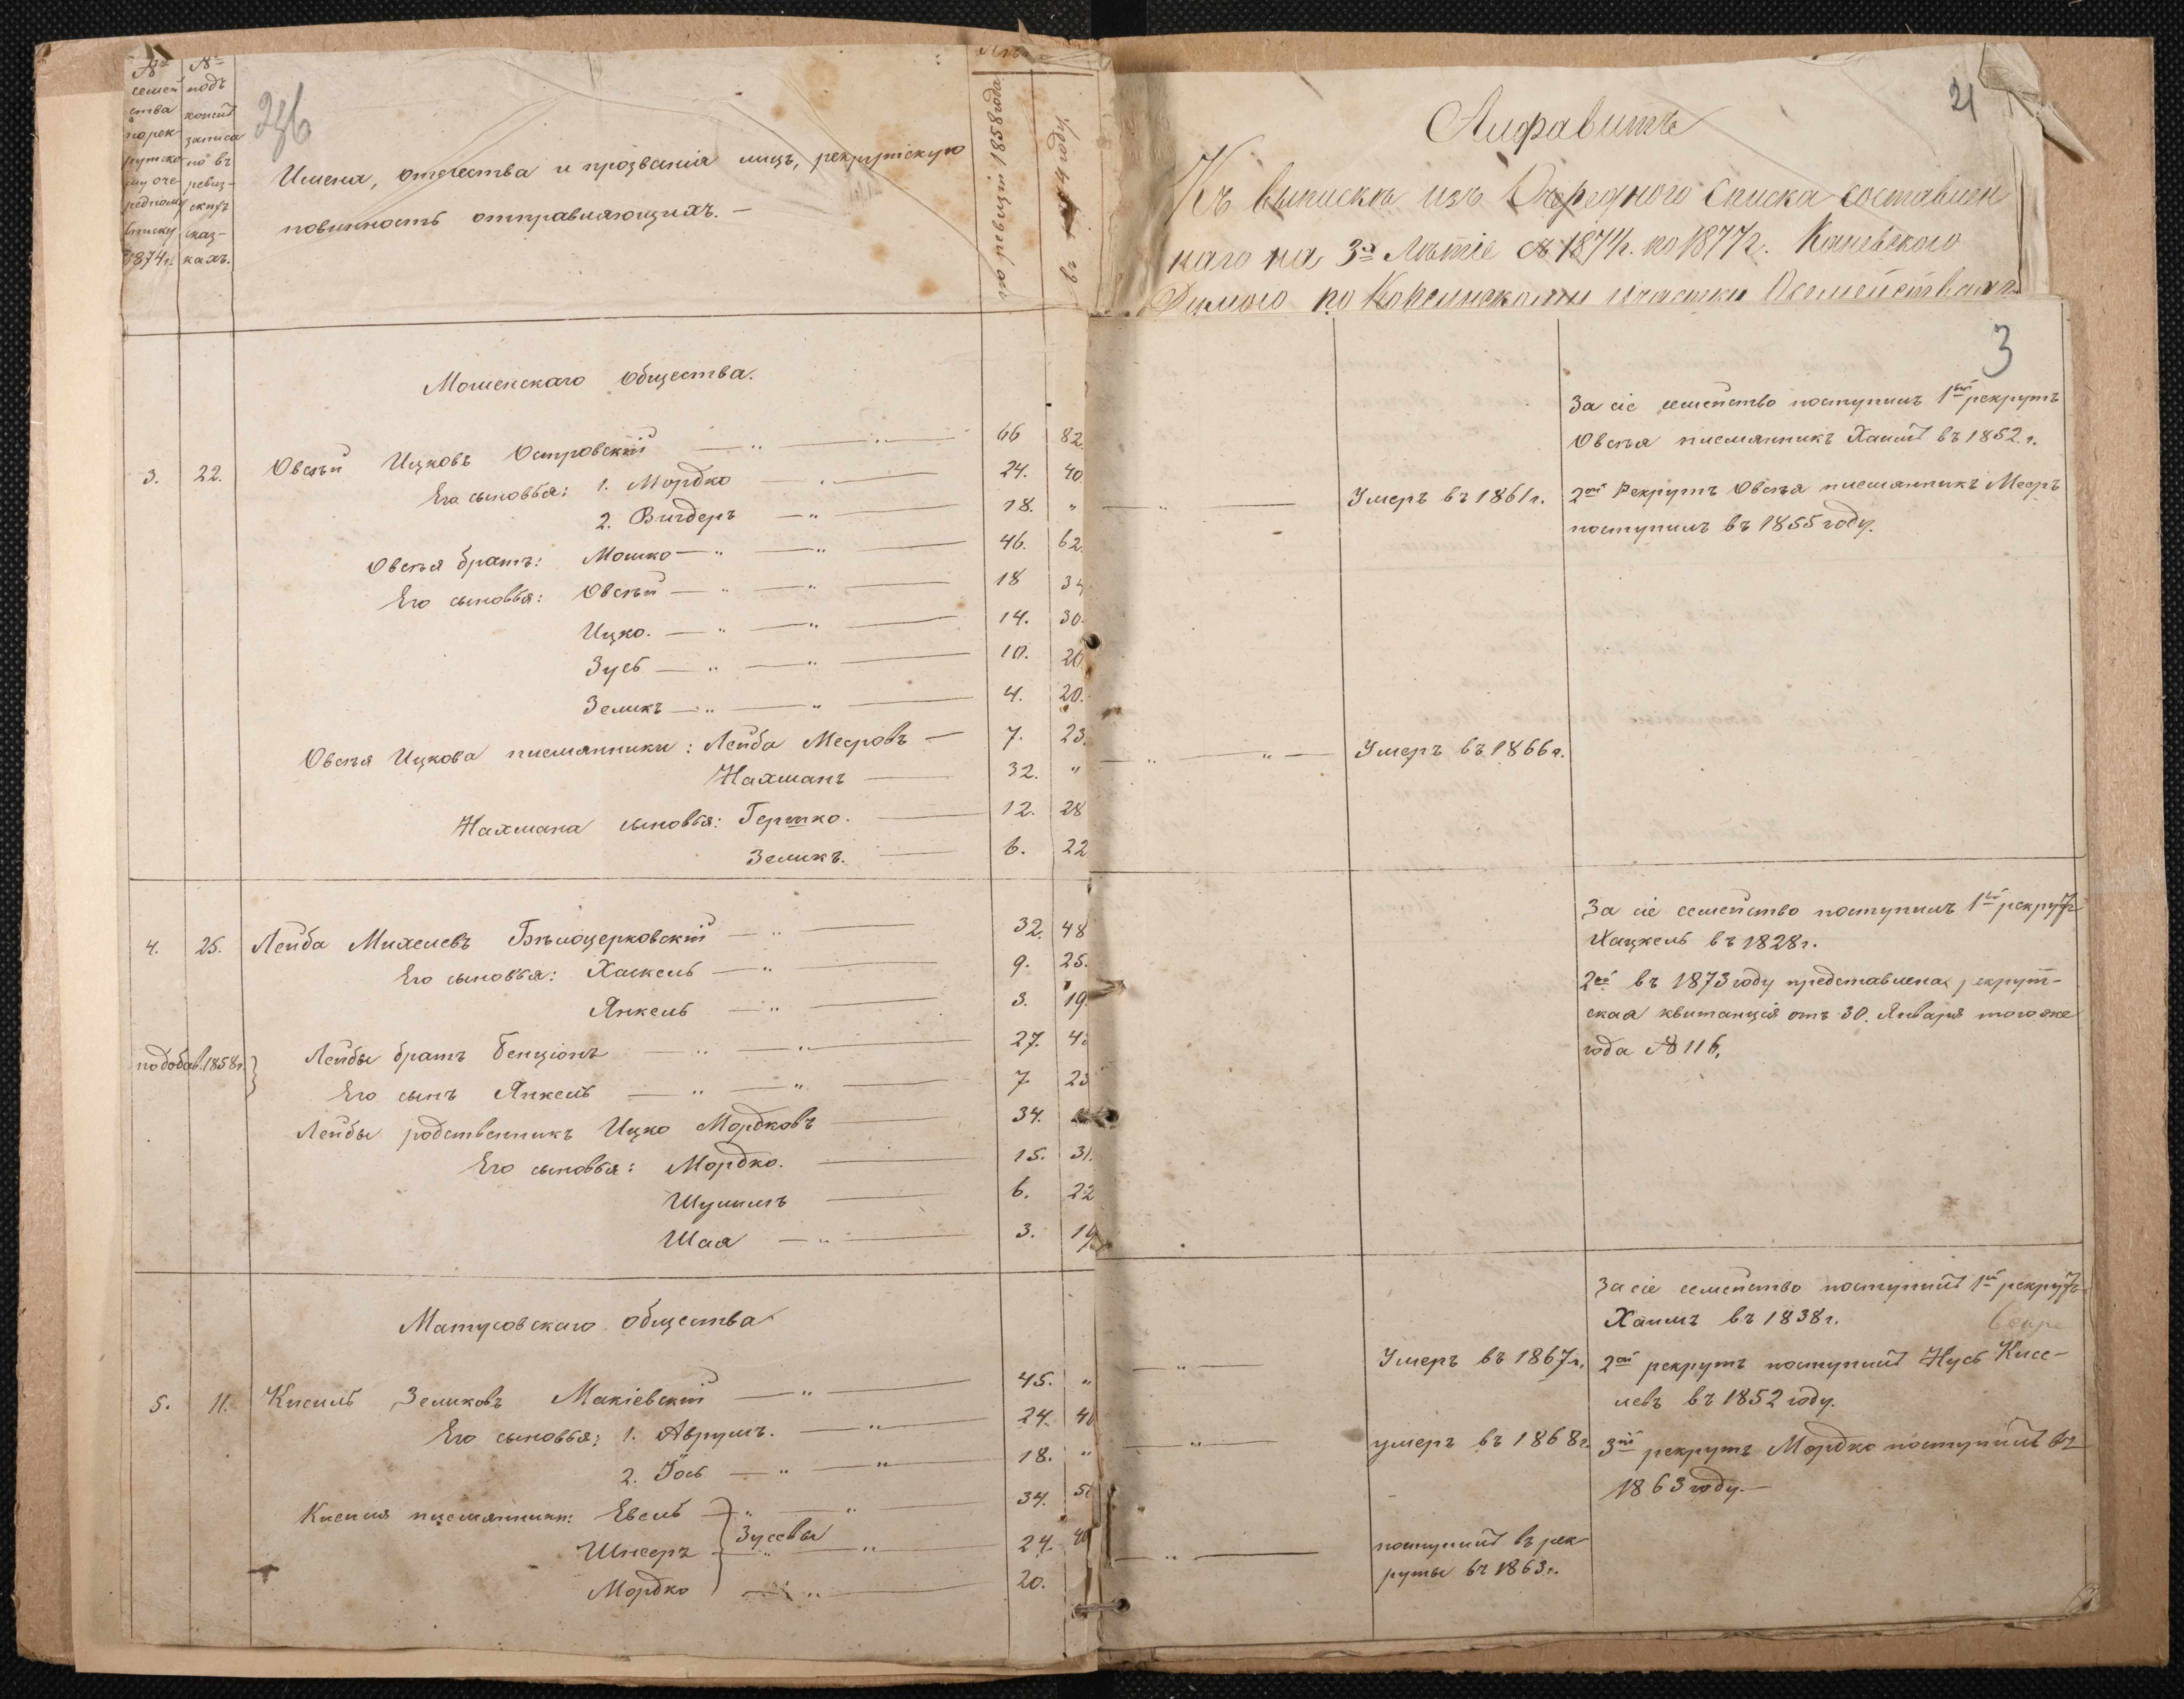 № семей ства по рек рутско му оче редному списку 1874 г.
№ подъ коимъ записа но въ ревиз- скихъ сказ- кахъ.
236
Имена, отечества и прозванія лицъ, рекрутскую
повинность отправляющихъ. —
по ревизіи 1858 года
въ 1874 году
Мошенскаго Общества.
3. 22. Овсѣй Ицковъ Островскій — „ — „ — 66 82
Его сыновья: 1. Мордко — „ — 24. 40
2. Вигдеръ — „ — 18. „
Овсѣя братъ: Мошко — „ — „ — 46. 62.
Его сыновья: Овсѣй — „ — „ — 18 34
Ицко. — „ — „ — 14. 30.
Зусь — „ — „ — 10. 26
Зеликъ — „ — „ — 4. 20.
Овсѣя Ицкова племянники: Лейба Мееровъ — 7. 23.
Нахманъ — 32. „
Нахмана сыновья: Гершко. — 12. 28
Зеликъ. — 6. 22
4. 25. Лейба Михелевъ Бѣлоцерковскій — „ — 32. 48
Его сыновья: Хаскель — „ — 9. 25.
Янкель — „ — 3. 19.
по добав. 1858 г. } Лейбы братъ Бенціонъ — „ — „ — 27. 4
Его сынъ Янкель — „ — „ — 7 23
Лейбы родственникъ Ицко Мордковъ — 34.
Его сыновья: Мордко. — 15. 31.
Шулимъ — 6. 22
Шая — „ — 3. 19
Матусовскаго общества
5. 11. Кисиль Зеликовъ Макіевскій — „ — 45. „
Его сыновья: 1. Аврумъ. — „ — 24. 40
2. Іось — „ — „ — 18. „
Кисиля племянники: Евель — „ — „ — 34. 50
Шнееръ } Зусевы — „ — „ — 24. 40
Мордко — „ — 20.
21
Алфавитъ
Къ выпискѣ изъ Очереднаго Списка составлен
наго на 3х Лѣтіе съ 1874 г. по 1877 г. Каневского
по Корсунскому участку О семействахъ
3
За сіе семейство поступилъ 1ый рекрутъ
Овсѣя племянникъ Хаимъ въ 1852 г.
— „ — Умеръ въ 1861 г. 2ой Рекрутъ Овсѣя племянникъ Мееръ
поступилъ въ 1855 году.
— „ — „ — Умеръ въ 1866 г.
За сіе семейство поступилъ 1ый рекрутъ
Хацкель въ 1828 г.
2ой въ 1873 году представлена рекрут-
ская квитанція отъ 30. Января того же
года № 116.
За сіе семейство поступилъ 1ый рекрутъ
Хаимъ въ 1838 г.
— „ — Умеръ въ 1867 г. 2ой рекрутъ поступилъ Нусь Кисе-
левъ въ 1852 году.
— „ — умеръ въ 1868 г. 3ій рекрутъ Мордко поступилъ въ
1863 году. —
— „ — поступилъ въ рек
руты въ 1863 г.